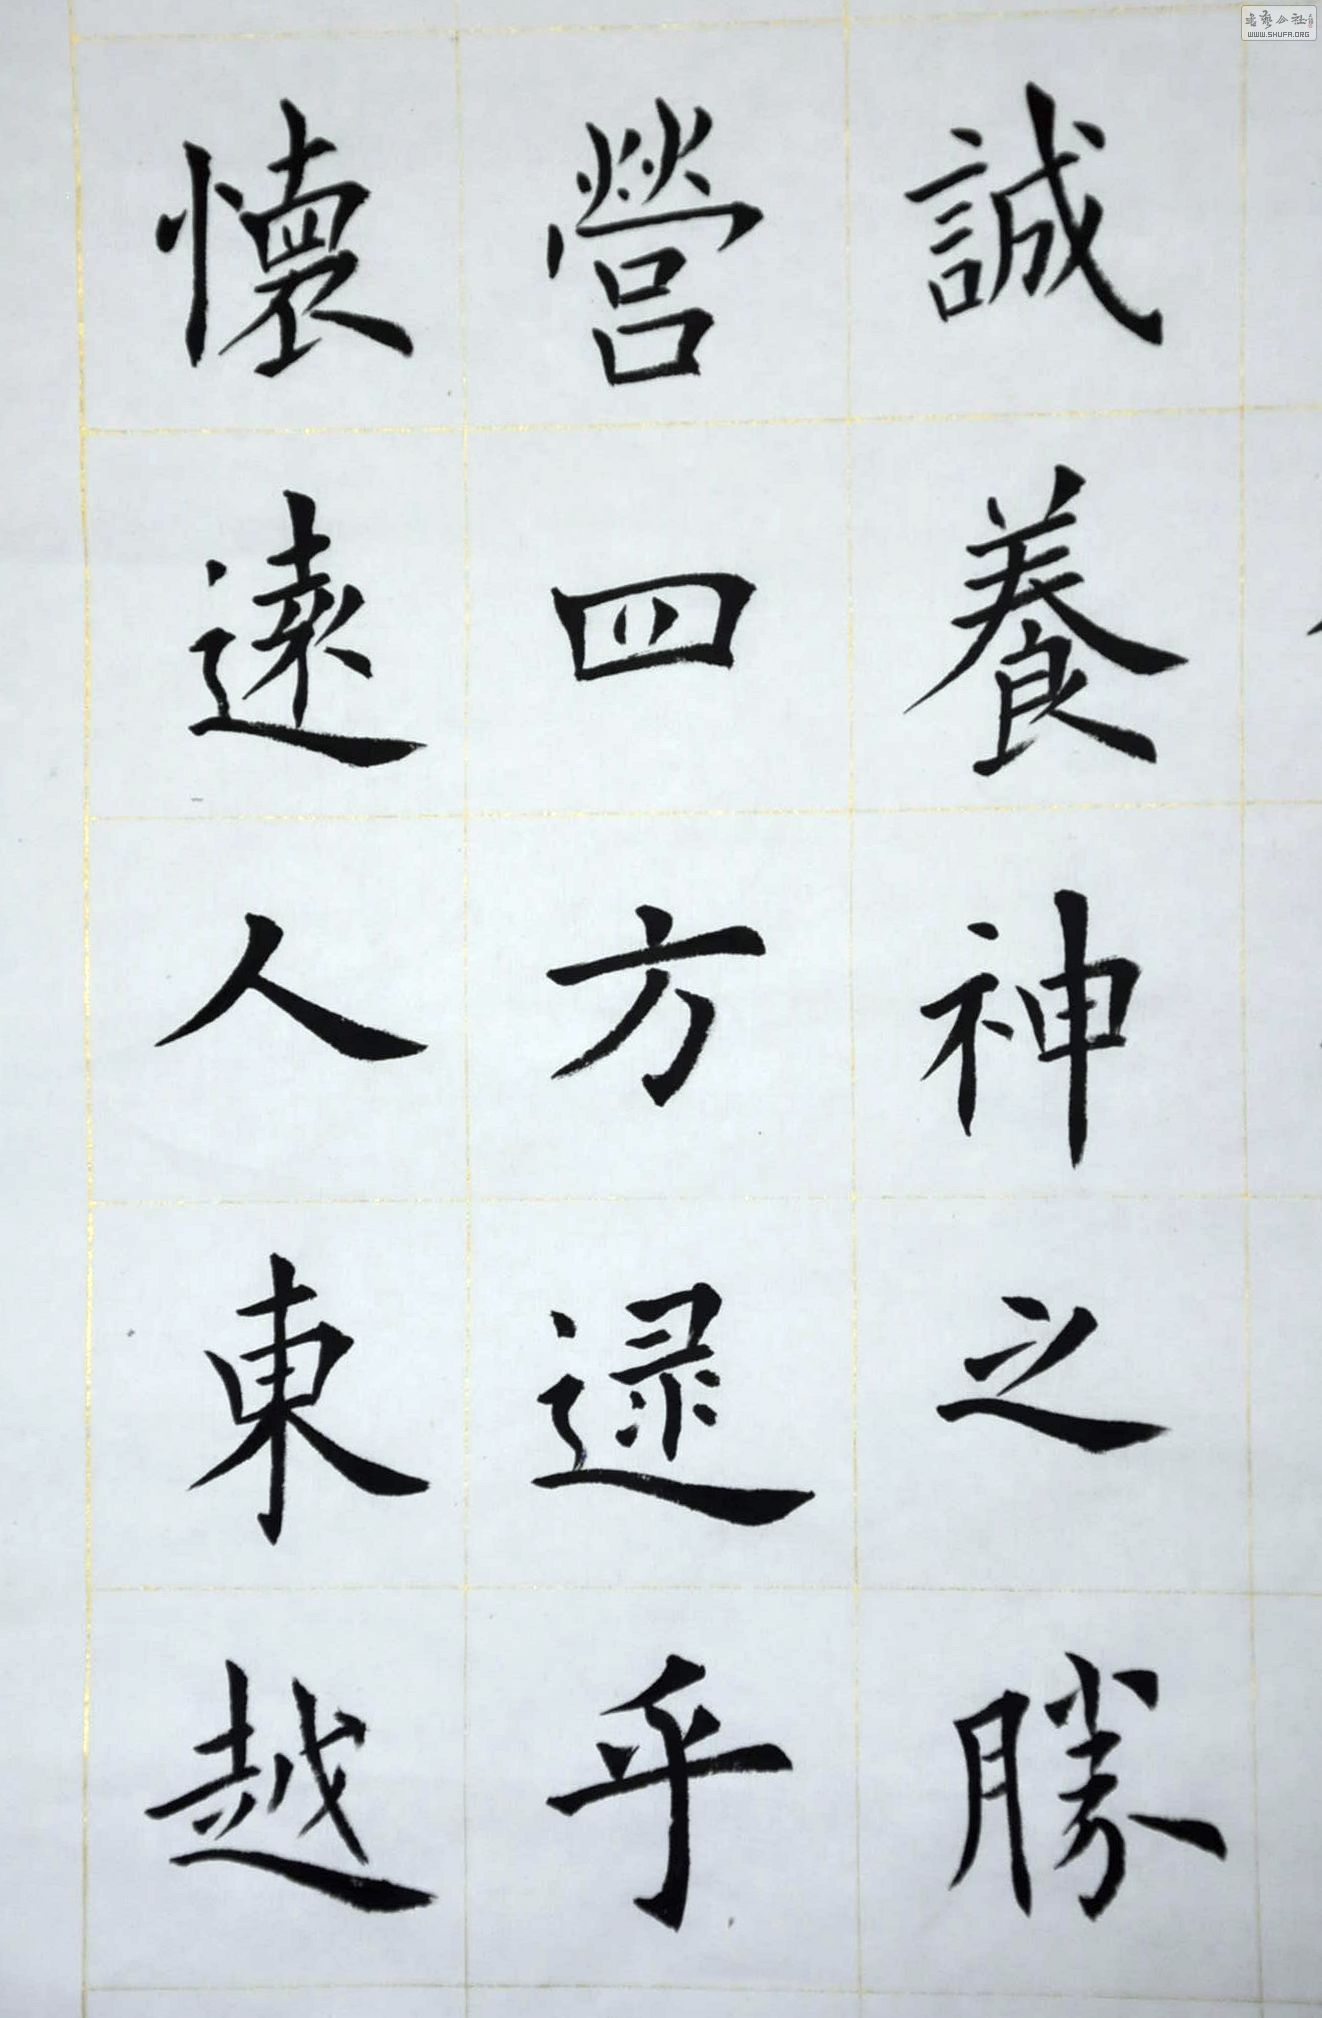 誠養神之勝
營四方逯乎
懷遠人東越
WWW.SHUFA.ORG